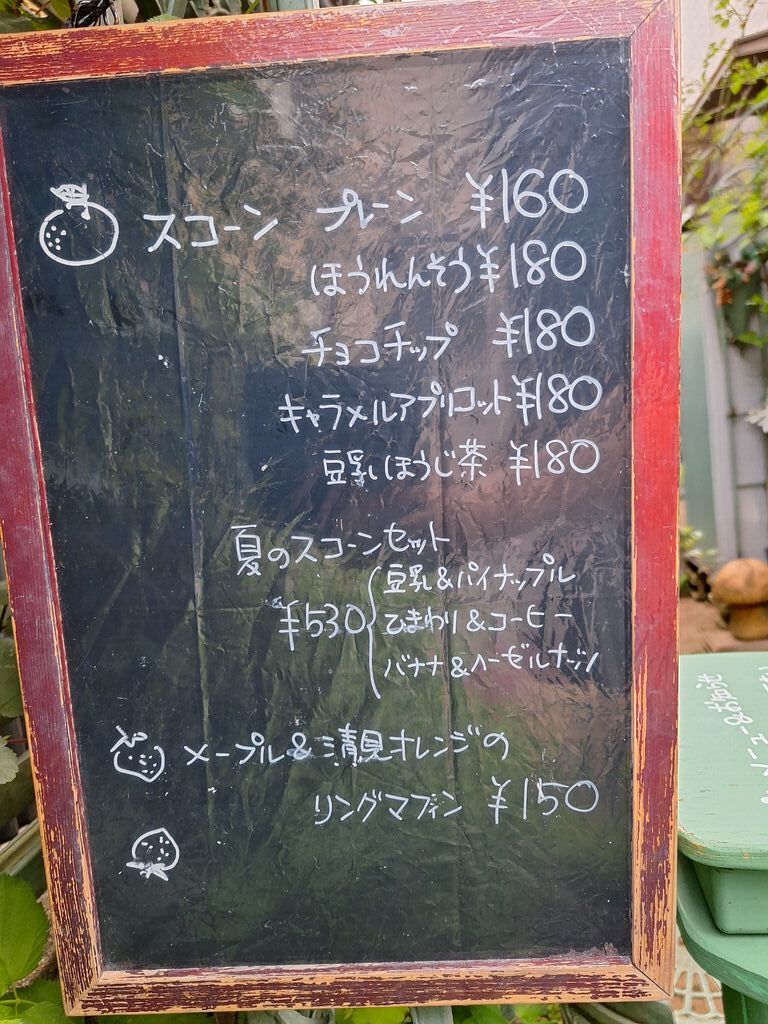 スコーン プレーン ¥160
ほうれんそう ¥180
チョコチップ ¥180
キャラメルアプリコット ¥180
豆乳ほうじ茶 ¥180
夏のスコーンセット
¥530
豆乳&パイナップル
ひまわり&コーヒー
バナナ&ヘーゼルナッツ
メープル&清見オレンジの
リングマフィン ¥150